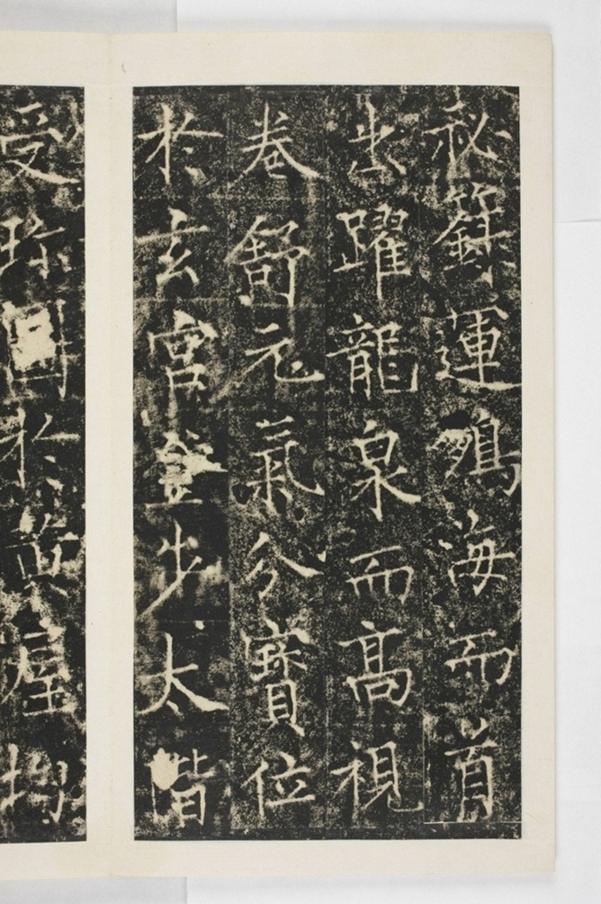 祕籌運海而首
出躍龍泉而高視
卷舒元氣分寶位
於玄宮登步太階
受珎圖於黃屋均